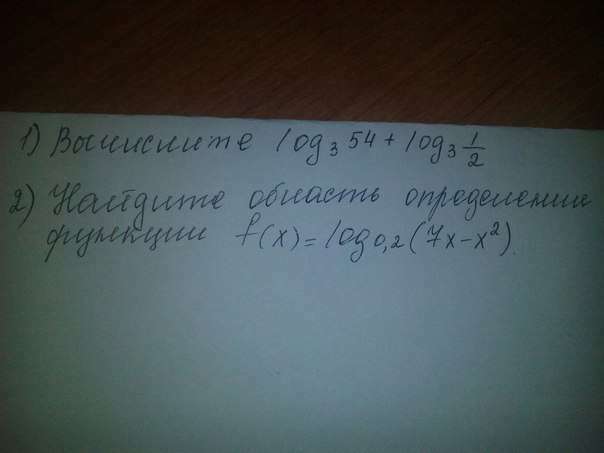 1) Вычислите log₃ 54 + log₃ 1/2
2) Найдите область определения
функции f(x) = log₀,₂ (7x - x²).